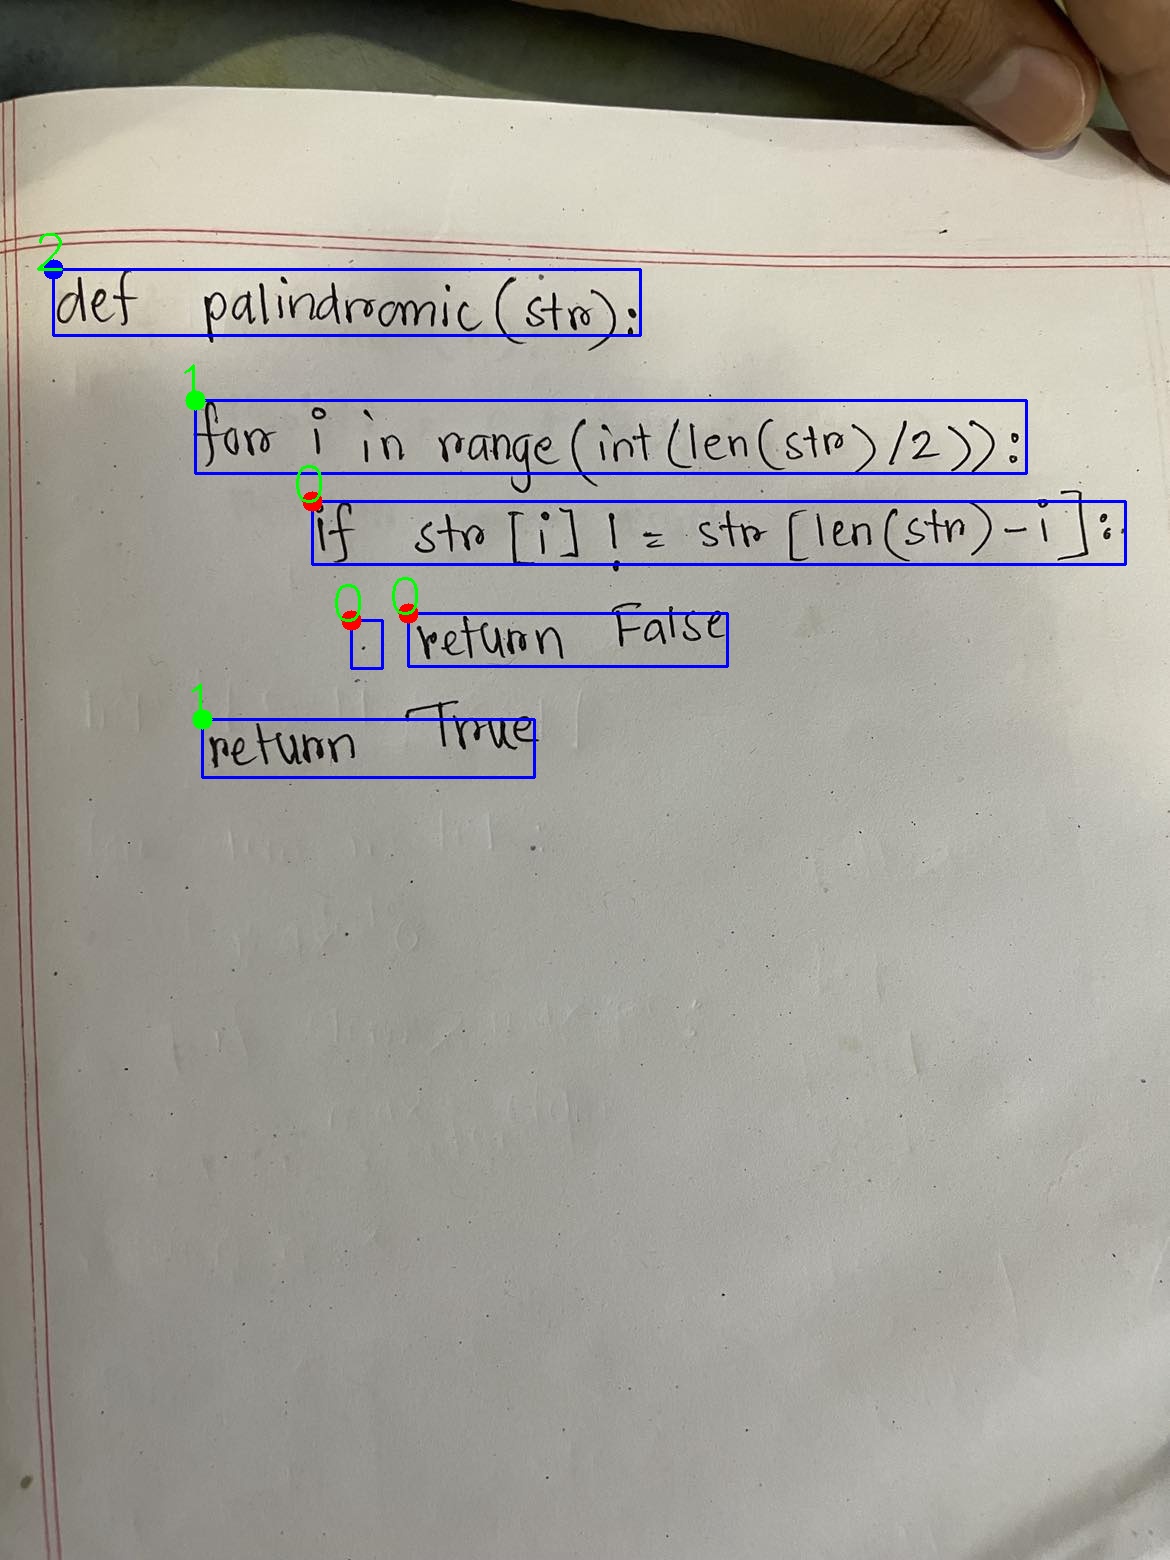 2
def palindromic(str):
1
for i in range(int(len(str)/2)):
0
if str[i] != str[len(str)-i]:
0 0
. return False
1
return True